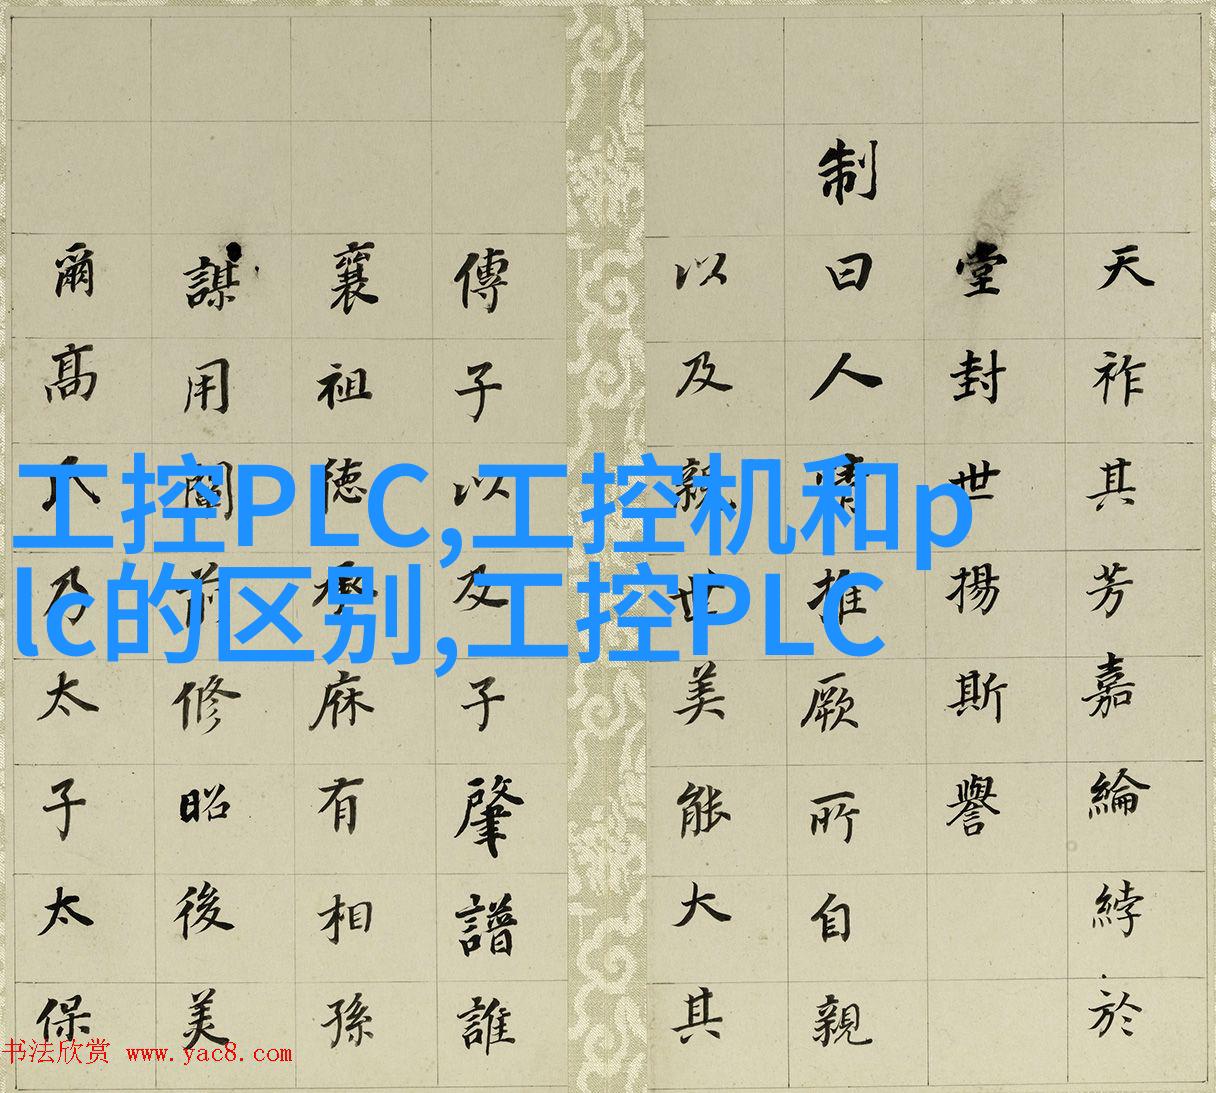 工控PLC,工控机和p
lc的区别,工控PLC
天祚其芳嘉綸綍於
堂封世揚斯譽
制曰人情推厥所自親
以及親世美能大其
傳子以及子肇譜誰
襄祖徳承庥有相孫
謀用前修昭後美
爾高氏乃太子太保
书法欣赏 www.yac8.com